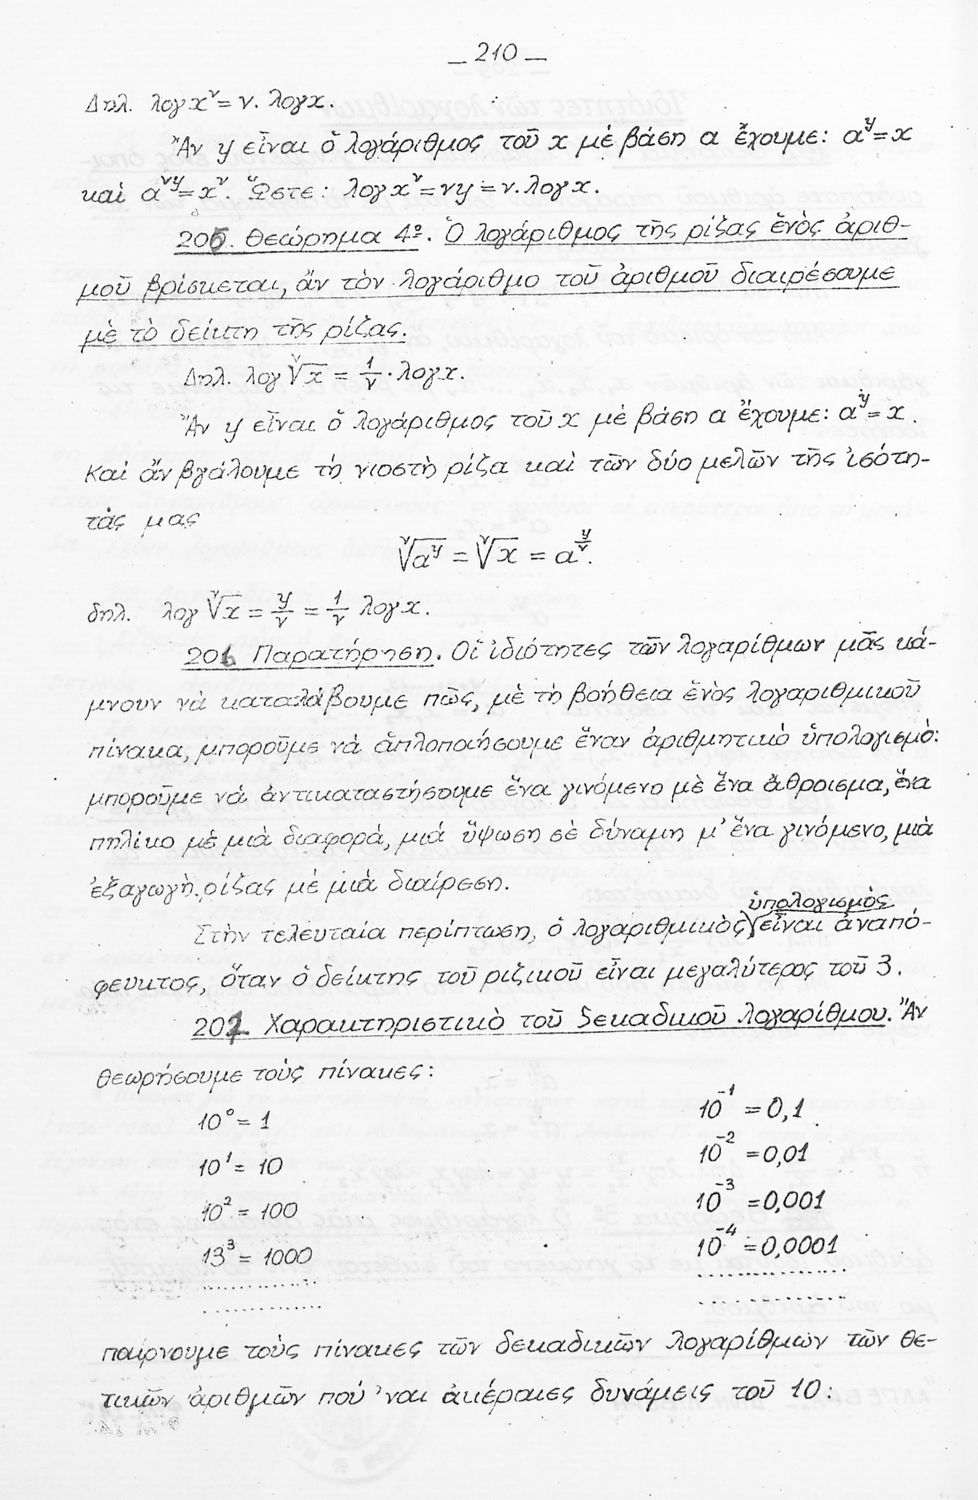 — 210 —
Δηλ. λογxᵛ= ν. λογx.
Ἄν y εἶναι ὁ λογάριθμος τοῦ x μὲ βάση α ἔχουμε: αʸ=x
καὶ αᵛʸ=xᵛ. Ὥστε: λογxᵛ=νy=ν.λογx.
205. Θεώρημα 4º. Ὁ λογάριθμος τῆς ρίζας ἑνὸς ἀριθ-
μοῦ βρίσκεται, ἄν τὸν λογάριθμο τοῦ ἀριθμοῦ διαιρέσουμε
μὲ τὸ δείκτη τῆς ρίζας.
Δηλ. λογ ᵛ√x = 1/ν · λογx.
Ἄν y εἶναι ὁ λογάριθμος τοῦ x μὲ βάση α ἔχουμε: αʸ= x.
Καὶ ἄν βγάλουμε τὴ νιοστὴ ρίζα καὶ τῶν δύο μελῶν τῆς ἰσότη-
τάς μας
ᵛ√αʸ = ᵛ√x = α^(y/ν).
δηλ. λογ ᵛ√x = y/ν = 1/ν λογx.
206 Παρατήρηση. Οἱ ἰδιότητες τῶν λογαρίθμων μᾶς κά-
μνουν νὰ καταλάβουμε πῶς, μὲ τὴ βοήθεια ἑνὸς λογαριθμικοῦ
πίνακα, μποροῦμε νὰ ἁπλοποιήσουμε ἕναν ἀριθμητικὸ ὑπολογισμό:
μποροῦμε νὰ ἀντικαταστήσουμε ἕνα γινόμενο μὲ ἕνα ἄθροισμα, ἕνα
πηλίκο μὲ μιὰ διαφορά, μιὰ ὕψωση σὲ δύναμη μ' ἕνα γινόμενο, μιὰ
ἐξαγωγὴ ρίζας μὲ μιὰ διαίρεση.
Στὴν τελευταία περίπτωση, ὁ λογαριθμικὸς ὑπολογισμὸς εἶναι ἀναπό-
φευκτος, ὅταν ὁ δείκτης τοῦ ριζικοῦ εἶναι μεγαλύτερος τοῦ 3.
207 Χαρακτηριστικὸ τοῦ δεκαδικοῦ λογαρίθμου. Ἄν
θεωρήσουμε τοὺς πίνακες:
10⁰= 1 10⁻¹ = 0,1
10¹= 10 10⁻² = 0,01
10² = 100 10⁻³ = 0,001
13³= 1000 10⁻⁴ = 0,0001
................ ................
................ ................
παίρνουμε τοὺς πίνακες τῶν δεκαδικῶν λογαρίθμων τῶν θε-
τικῶν ἀριθμῶν πού 'ναι ἀκέραιες δυνάμεις τοῦ 10: